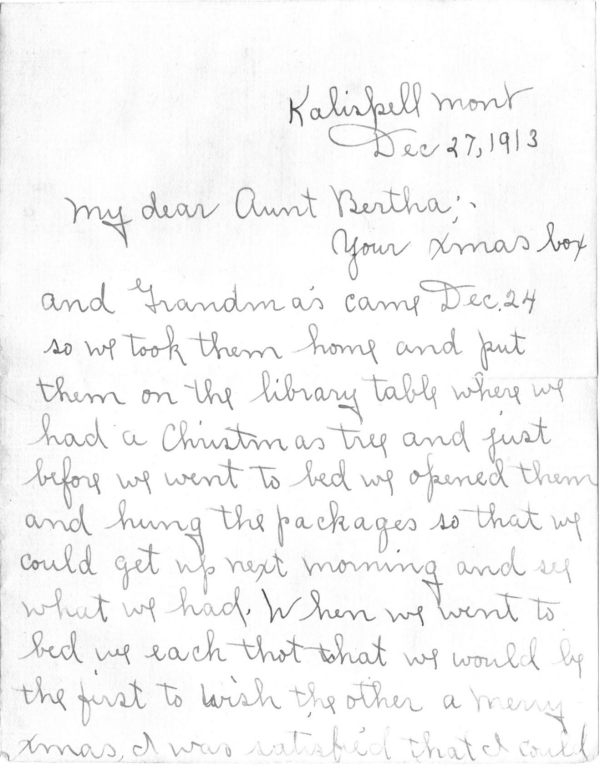 Kalispell Mont
Dec 27, 1913
My dear Aunt Bertha;.
Your Xmas box
and Grandma's came Dec. 24
so we took them home and put
them on the library table where we
had a Christmas tree and just
before we went to bed we opened them
and hung the packages so that we
could get up next morning and see
what we had. When we went to
bed we each thot that we would be
the first to wish the other a merry
xmas, I was satisfied that I could